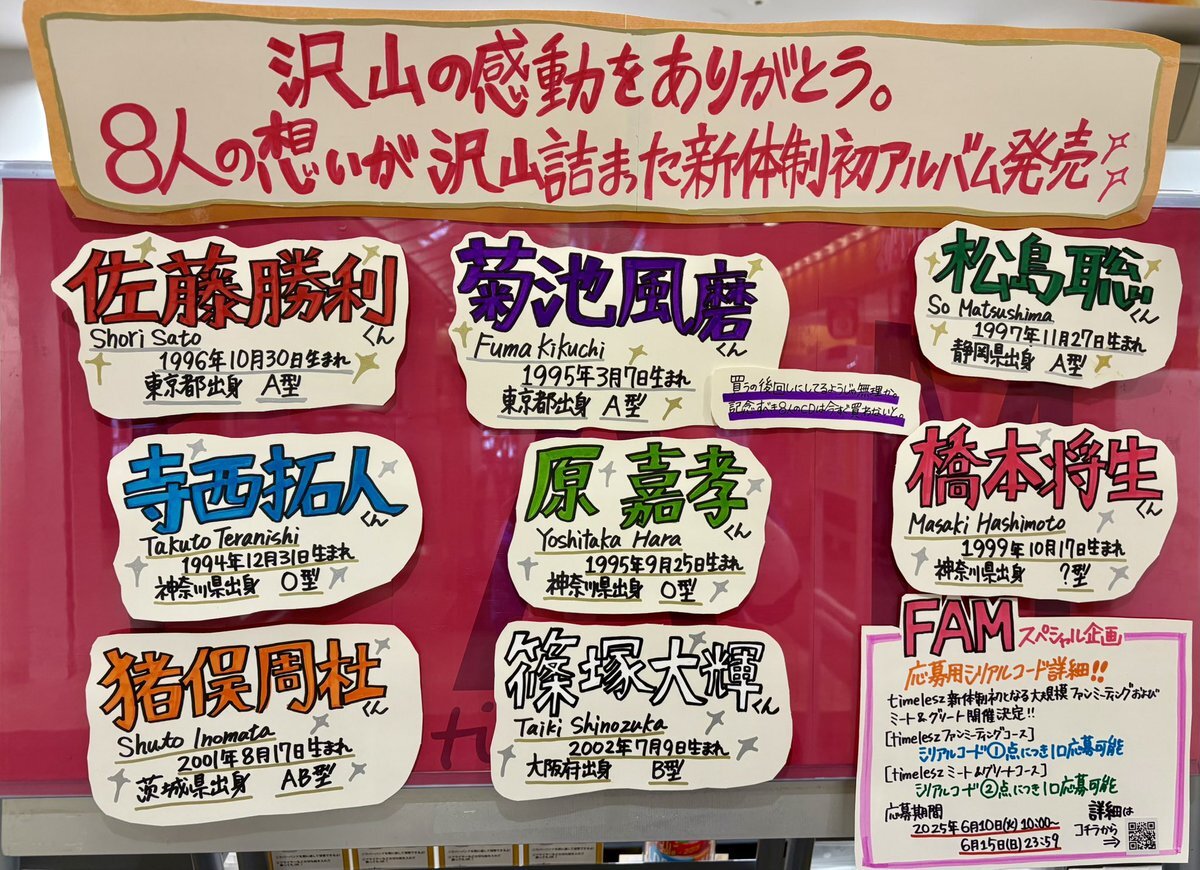 沢山の感動をありがとう。
8人の想いが沢山詰まった新体制初アルバム発売
佐藤勝利くん
Shori Sato
1996年10月30日生まれ
東京都出身 A型
菊池風磨くん
Fuma Kikuchi
1995年3月7日生まれ
東京都出身 A型
買うの後回しにしてるようじゃ無理か。
記念すべき8人のCDは今すぐ買わないと。
松島聡くん
So Matsushima
1997年11月27日生まれ
静岡県出身 A型
寺西拓人くん
Takuto Teranishi
1994年12月31日生まれ
神奈川県出身 O型
原 嘉孝くん
Yoshitaka Hara
1995年9月25日生まれ
神奈川県出身 O型
橋本将生くん
Masaki Hashimoto
1999年10月17日生まれ
神奈川県出身 ?型
猪俣周杜くん
Shuto Inomata
2001年8月17日生まれ
茨城県出身 AB型
篠塚大輝くん
Taiki Shinozuka
2002年7月9日生まれ
大阪府出身 B型
FAMスペシャル企画
応募用シリアルコード詳細!!
timelesz新体制初となる大規模ファンミーティングおよび
ミート&グリート開催決定!!
[timeleszファンミーティングコース]
シリアルコード①点につき1口応募可能
[timeleszミート&グリートコース]
シリアルコード②点につき1口応募可能
応募期間
2025年6月10日(火)10:00~
6月15日(日)23:59
詳細は
コチラから
⇒